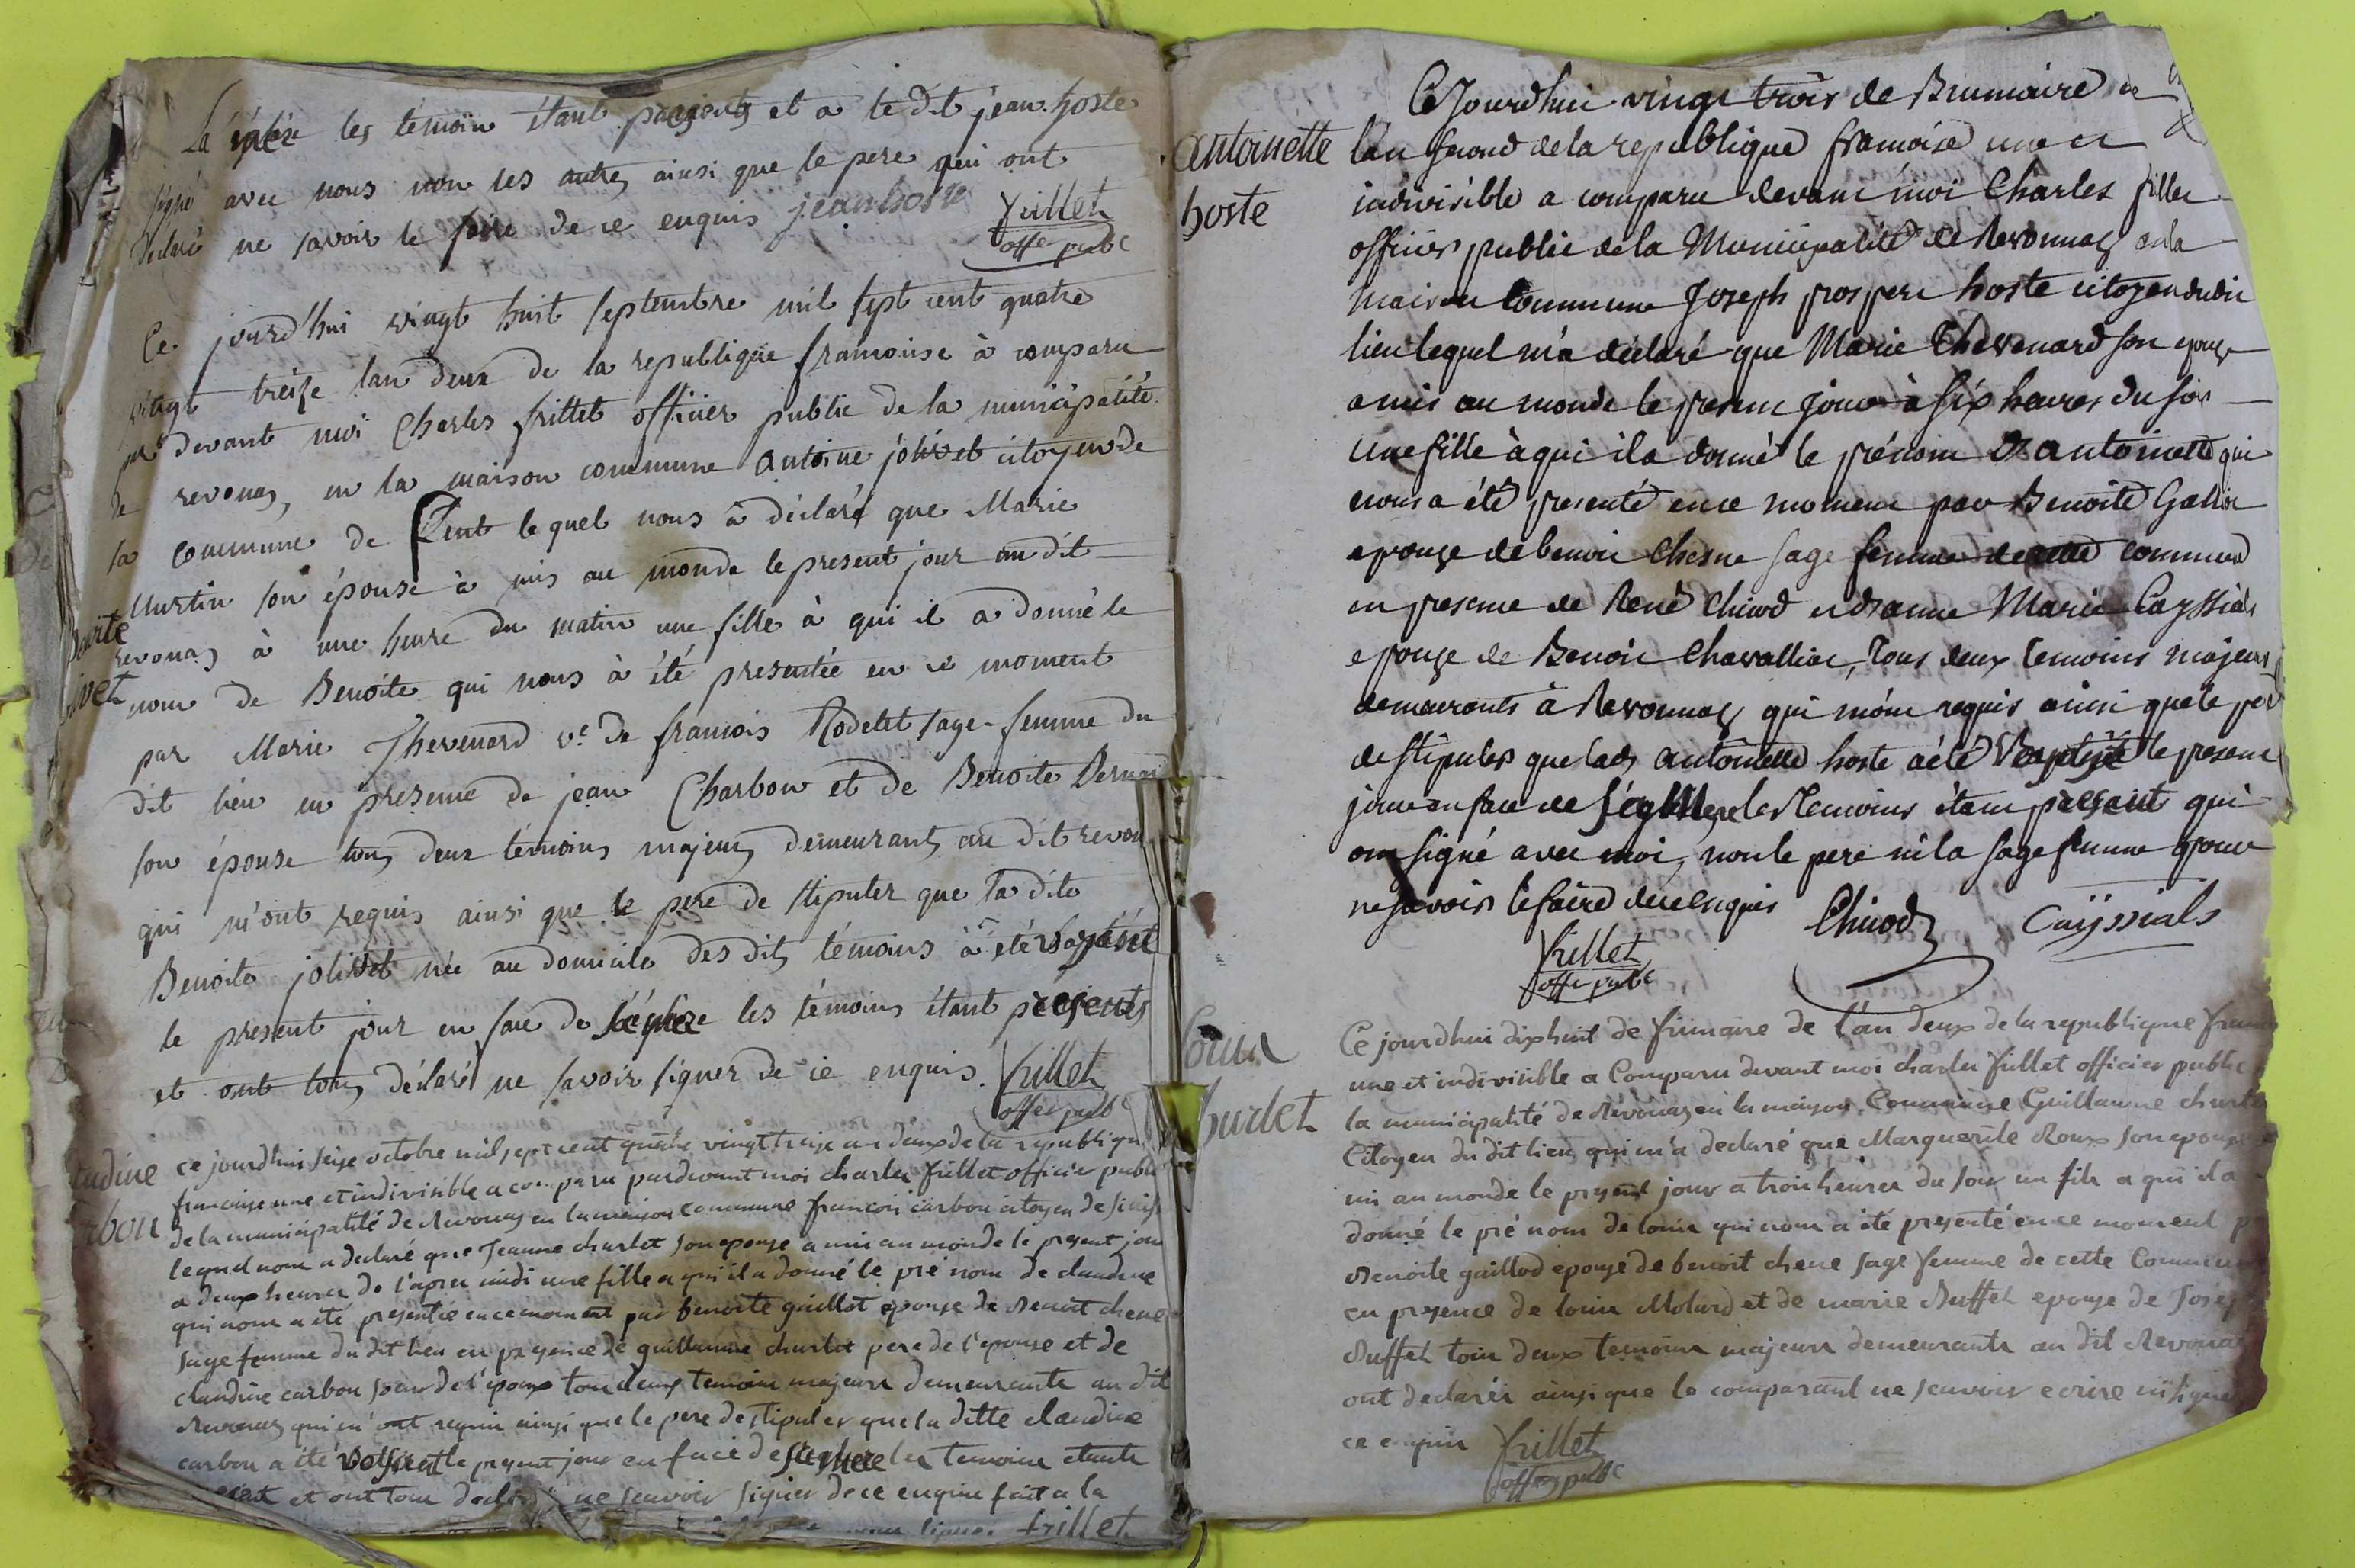 La église les témoin étant présents et a le dit jean hoste
signé avec nous non les autres ainsi que le pere qui ont
declaré ne savoir le faire de ce enquis jean hoste frillet
offer pubc
Ce jourd'hui vingt huit septembre mil sept cent quatre
vingt treize lan deux de la republique francoise à comparu
par devant moi Charles frillet officier public de la municipalité
de revonas, en la maison commune antoine jolivet citoyen de
la commune de lequel nous à déclaré que Marie
Martin son épouse à mis au monde le present jour au dit
revonas à une heure du matin une fille à qui il a donné le
nom de Benoite qui nous à été presentée en ce moment
par Marie Thevenard ve. de francois Rodelet sage-femme du
dit lieu en presence de jean Charbon et de Benoite
son épouse tous deux témoins majeurs demeurants au dit revon
qui m'ont requis ainsi que le pere de stipuler que la dite
Benoite jolivet née au domicile des dits témoins à été
le present jour en face de l'église les témoins étant présents
et ont tous déclaré ne savoir signer de ce enquis. frillet
offer pubc
ivet
udine
rbon
ce jourdhui seize octobre mil sept cent quatre vingt treize an deux de la republiqu
francaise une et indivisible a comparu pardevant moi charles frillet officier publi
de la municipalité de Revonas en la maison commune francois carbon citoyen de
lequel nous a declaré que Jeanne charlet son epouse a mis au monde le present jou
a deux heures de l'apres midi une fille a qui il a donné le pré nom de claudine
qui nous a été presentée en ce moment par benoite guillot epouse de Benoit chene
sage femme du dit lieu en presence de guillaume charlet pere de l'epouse et de
claudine carbon soeur de l'epoux tous deux temoins majeurs demeurants au dit
Revonas qui m'ont requis ainsi que le pere de stipuler que la ditte claudine
carbon a été le present jour en face de l'église les temoins etants
et ont tous declaré ne scavoir signer de ce enquis fait a la
frillet
antoinette
hoste
Ce Jourdhui vingt trois de Brumaire de
lan second de la republique francoise une et
indivisible a comparu devant moi Charles frillet
officier public de la Municipalité de Revonnas en la
maison Commune Joseph prospere hoste citoyen dudit
lieu lequel m'a déclaré que Marie Thevenard son epouse
a mis au monde le present jour à six heures du soir
une fille à qui il a donné le prénom d'antoinette qui
nous a été presenté en ce moment par Benoite
epouse de benoit Chesne sage femme de cette commune
en presence de René Chirod et d'anne Marie Cayssials
epouse de Benoit Chavallier, tous deux temoins majeurs
demeurants à Revonnas qui m'ont requis ainsi que le pere
de stipuler que lad. antoinette hoste a été baptisé le present
jour en face de l'église les temoins étant présents qui
ont signé avec moi, non le pere ni la sage femme pour
ne savoir le faire de ce enquis Chirod Caÿssials
frillet
offer pubc
Louis
hurlet
Ce jourdhui dixhuit de frimaire de l'an deux de la republique franc
une et indivisible a Comparu devant moi charles frillet officier public
la municipalité de Révonas en la maison Commune Guillaume
Citoyen du dit lieu qui m'a declaré que Marguerite Roux son epouse
mi au monde le present jour a trois heures du soir un fils a qui il a
donné le pré nom de louis qui nous a été presenté en ce moment p
Benoite guillod epouse de benoit chene sage femme de cette Commun
en presence de louis Molard et de marie Buffet epouse de Josep
Buffet tous deux temoins majeurs demeurants au dit Revona
ont declarés ainsi que le comparant ne scavoir ecrire ni signe
ce enquis frillet
offer pubc